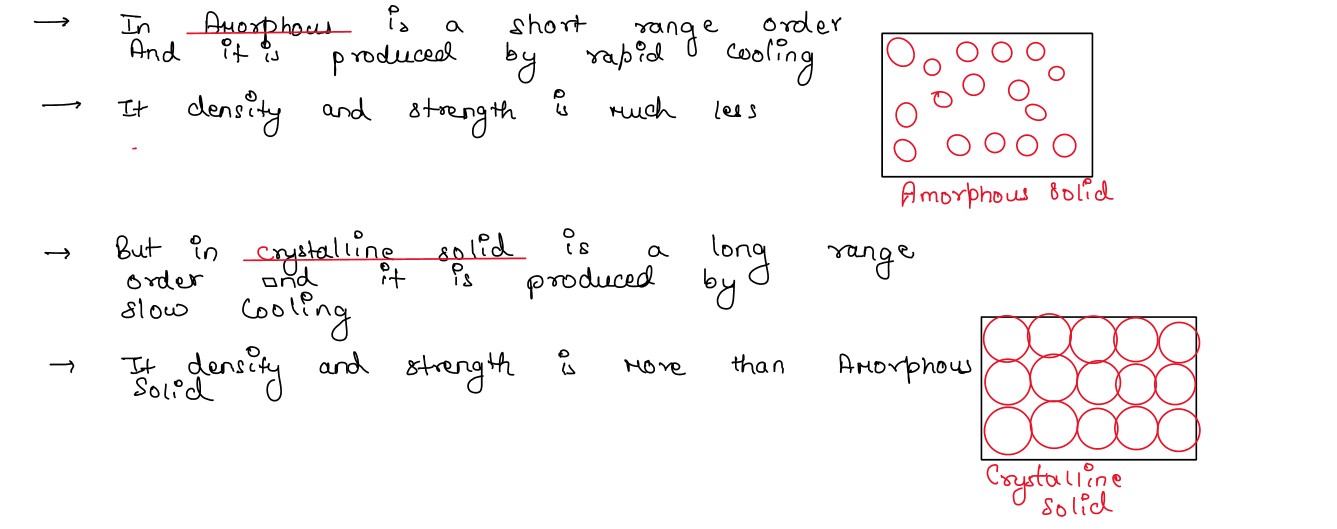 → In Amorphous is a short range order
And it is produced by rapid cooling
→ It density and strength is much less
Amorphous solid
→ But in crystalline solid is a long range
order and it is produced by
slow cooling
→ It density and strength is more than Amorphous
Solid
Crystalline
solid